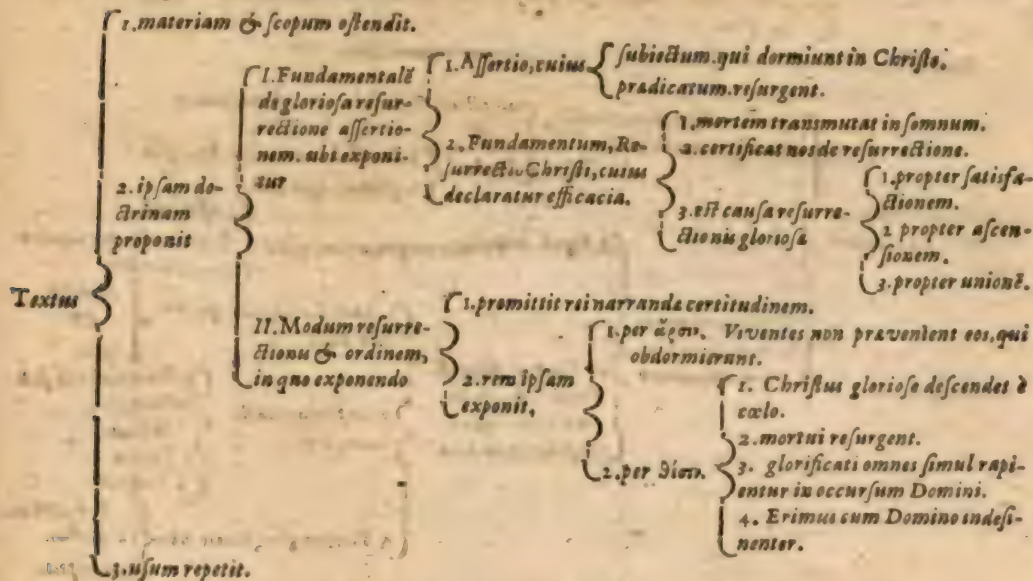 1.materiam & ſcopum oſtendit.
Textus
2. ipſam do-
ctrinam
proponit
I.Fundamentalē
de glorioſa reſur-
rectione aſſertio-
nem. ubi exponi-
tur
1.Aſſertio, cuius
ſubiectum. qui dormiunt in Chriſto.
prædicatum. reſurgent.
2. Fundamentum, Re-
ſurrectio Chriſti, cuius
declaratur efficacia.
1.mortem tranſmutat in ſomnum.
2.certificat nos de reſurrectione.
3.eſt cauſa reſurre-
ctionis glorioſæ
1.propter ſatisfa-
ctionem.
2 propter aſcen-
ſionem.
3.propter unionē.
II.Modum reſurre-
ctionis & ordinem,
in quo exponendo
1.promittit rei narrandæ certitudinem.
2.rem ipſam
exponit,
1.per ἄρσιν. Viventes non prævenient eos, qui
obdormierunt.
2.per θέσιν.
1. Chriſtus glorioſe deſcendet è
cœlo.
2.mortui reſurgent.
3. glorificati omnes ſimul rapi-
entur in occurſum Domini.
4. Erimus cum Domino indeſi-
nenter.
3.uſum repetit.